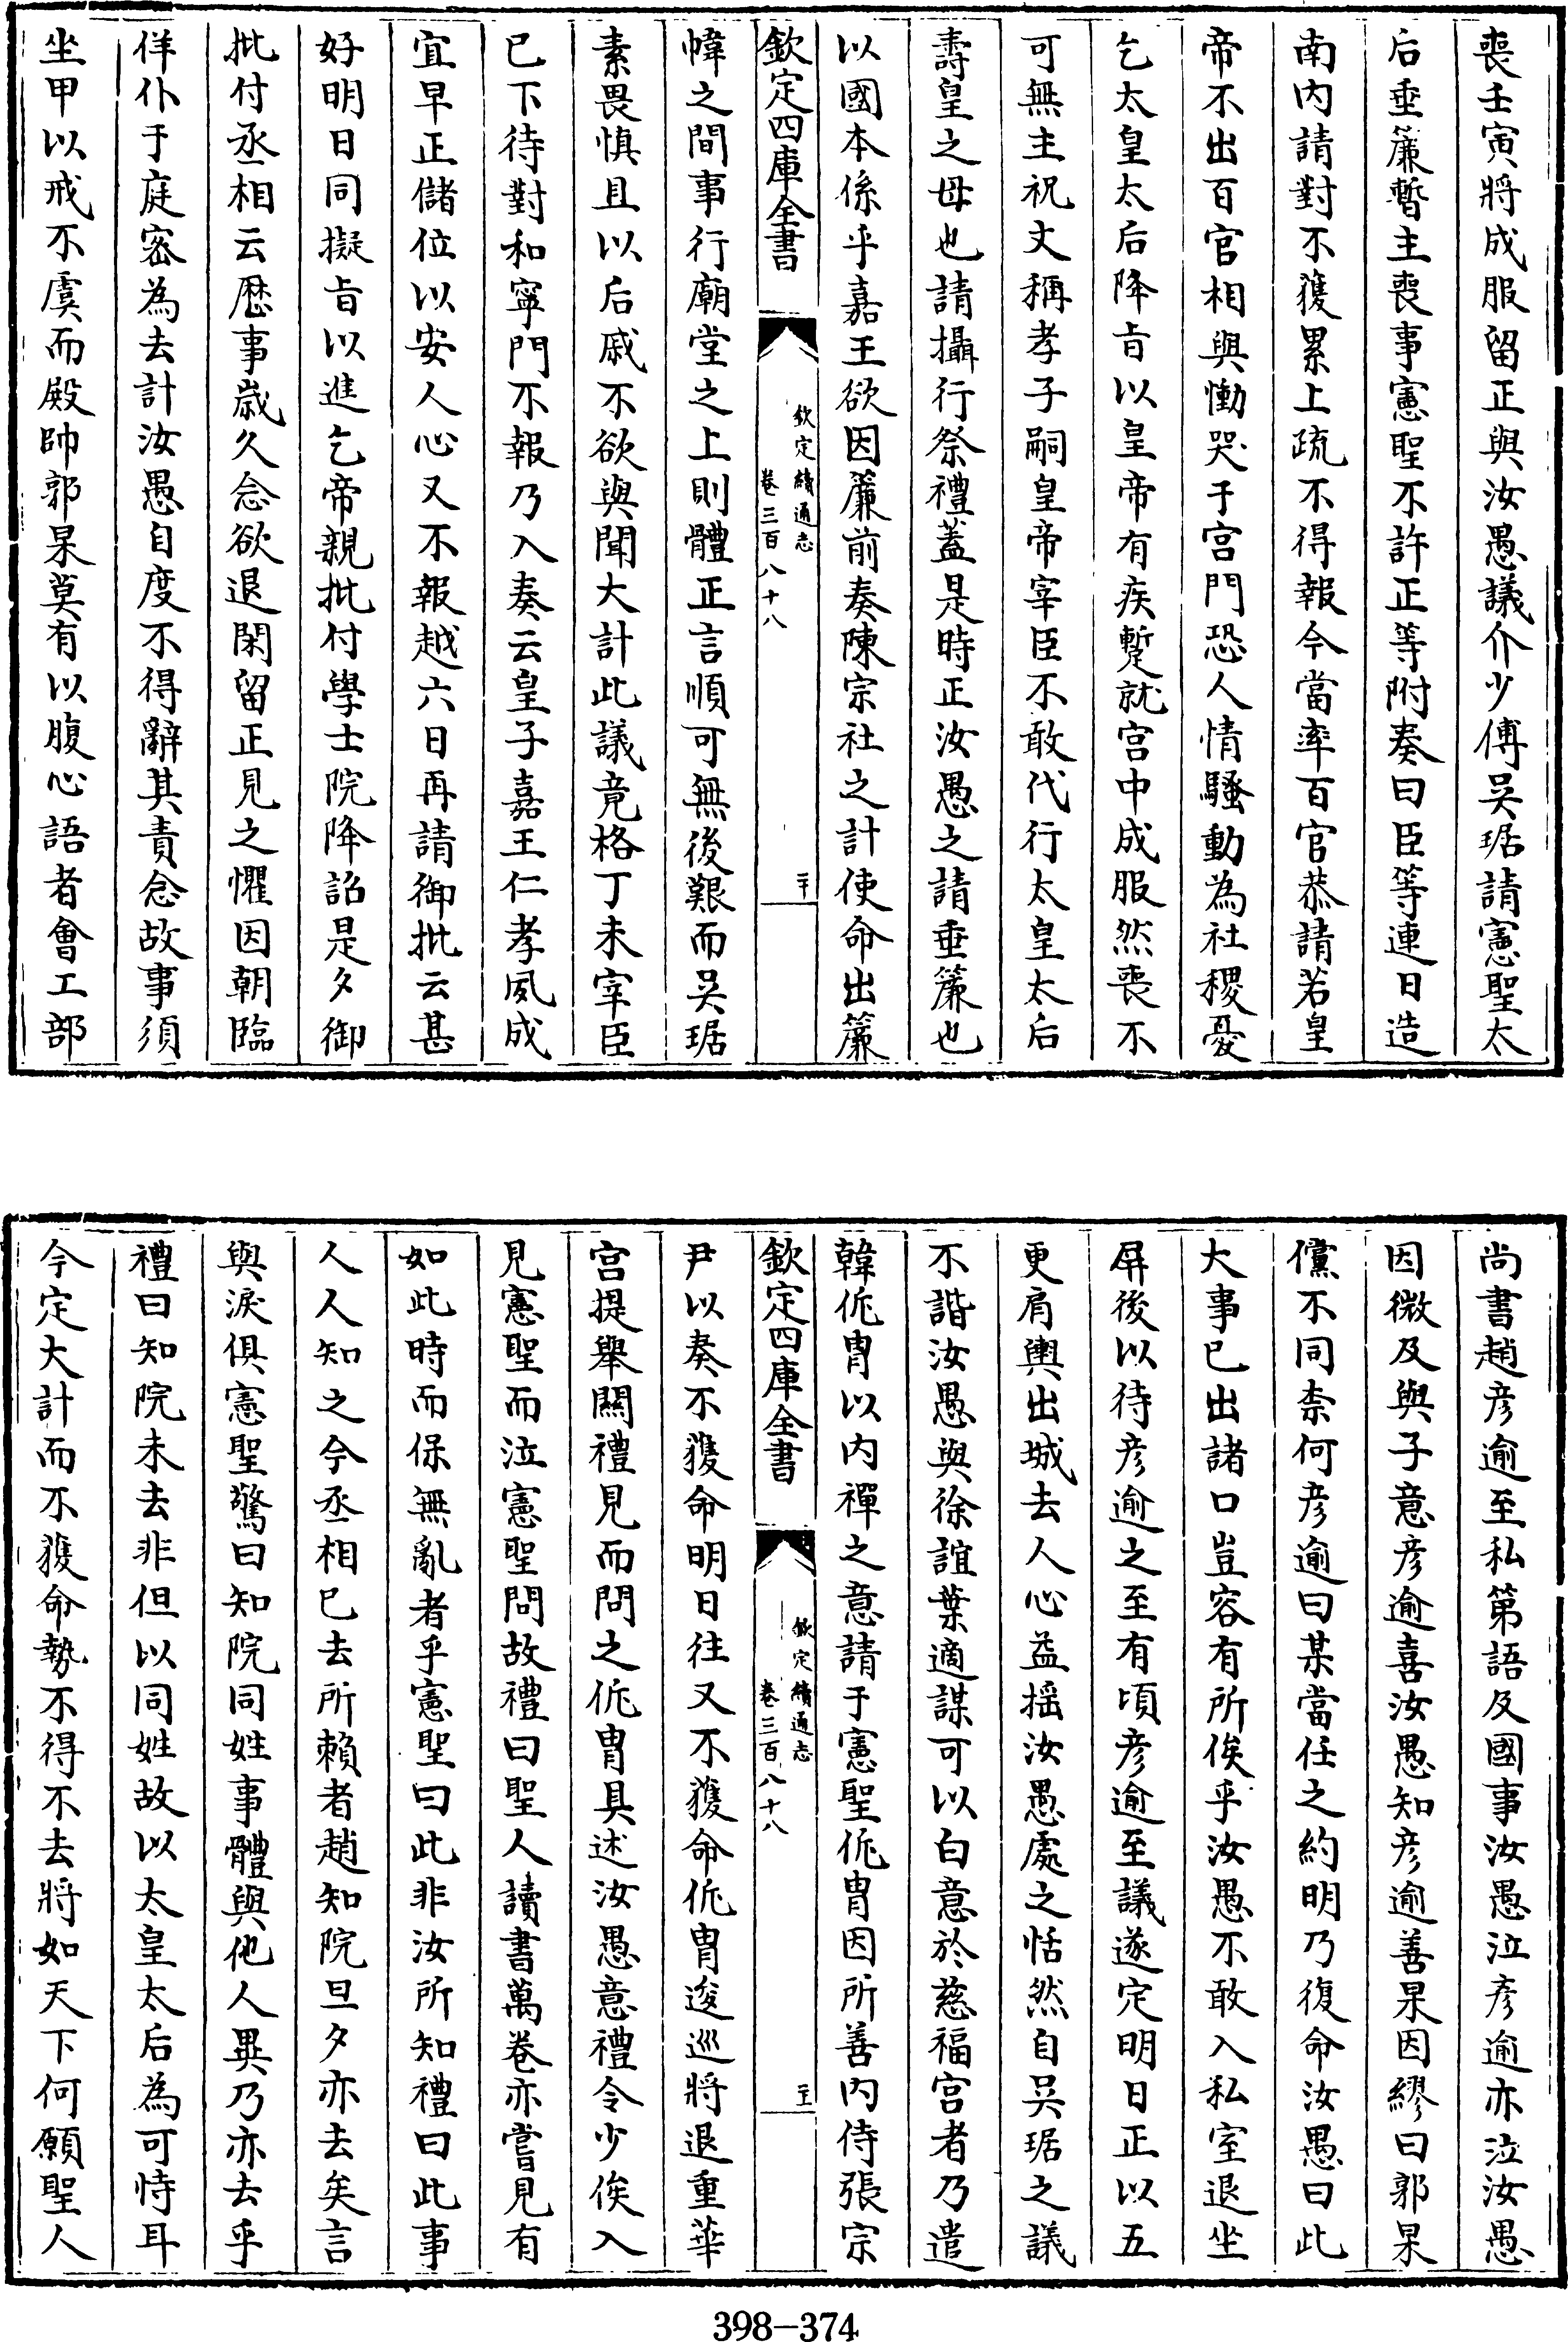 喪壬寅將成服留正與汝愚議介少傅吳琚請憲聖太
后垂簾暫主喪事憲聖不許正等附奏曰臣等連日造
南内請對不獲累上疏不得報今當率百官恭請若皇
帝不出百官相與慟哭于宫門恐人情騷動為社稷憂
乞太皇太后降㫖以皇帝有疾蹔就宫中成服然喪不
可無主祝文稱孝子嗣皇帝宰臣不敢代行太皇太后
壽皇之母也請攝行祭禮蓋是時正汝愚之請垂簾也
以國本係乎嘉王欲因簾前奏陳宗社之計使命出簾
欽定四庫全書
欽定續通志
卷三百八十八
二十
幃之間事行廟堂之上則體正言順可無後艱而吳琚
素畏慎且以后戚不欲與聞大計此議竟格丁未宰臣
已下待對和寧門不報乃入奏云皇子嘉王仁孝夙成
宜早正儲位以安人心又不報越六日再請御批云甚
好明日同擬㫖以進乞帝親批付學士院降詔是夕御
批付丞相云歴事歲久念欲退閑留正見之懼因朝臨
佯仆于庭密為去計汝愚自度不得辭其責念故事須
坐甲以戒不虞而殿帥郭杲莫有以腹心語者會工部
尚書趙彦逾至私第語及國事汝愚泣彦逾亦泣汝愚
因微及與子意彦逾喜汝愚知彦逾善杲因繆曰郭杲
儻不同柰何彦逾曰某當任之約明乃復命汝愚曰此
大事已出諸口豈容有所俟乎汝愚不敢入私室退坐
屏後以待彦逾之至有頃彦逾至議遂定明日正以五
更肩輿出城去人心益揺汝愚處之恬然自吳琚之議
不諧汝愚與徐誼葉適謀可以白意於慈福宫者乃遣
韓侂胄以内禪之意請于憲聖侂胄因所善内侍張宗
欽定四庫全書
欽定續通志
卷三百八十八
二十一
尹以奏不獲命明日往又不獲命侂胄逡巡將退重華
宫提舉關禮見而問之侂胄具述汝愚意禮令少俟入
見憲聖而泣憲聖問故禮曰聖人讀書萬卷亦嘗見有
如此時而保無亂者乎憲聖曰此非汝所知禮曰此事
人人知之今丞相已去所賴者趙知院旦夕亦去矣言
與淚俱憲聖驚曰知院同姓事體與他人異乃亦去乎
禮曰知院未去非但以同姓故以太皇太后為可恃耳
今定大計而不獲命勢不得不去將如天下何願聖人
398-374